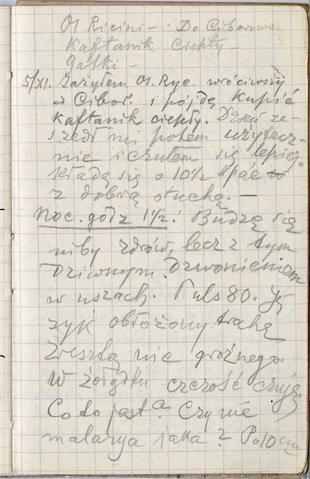 Ol Ricini – Do Ciborowa.
Kaftanik ciepły
Gatki –
5/XI. Zażyłem Ol. Ryc. wróciwszy
od Cibor. i pójdę kupić
kaftanik ciepły. Dzień ze-
szedł mi potem użytecz-
nie i czułem się lepiej.
Kładę się o 10½ spać
z dobrą otuchą. –
Noc. godz 1½! Budzę się
niby zdrów, lecz z tym
dziwnym dzwonieniem
w uszach. Puls 80. Ję
zyk obłożony trochę
Zresztą nic groźnego.
W żołądku czczość czuję
Co to jest? Czy nie
malarya jaka? Po